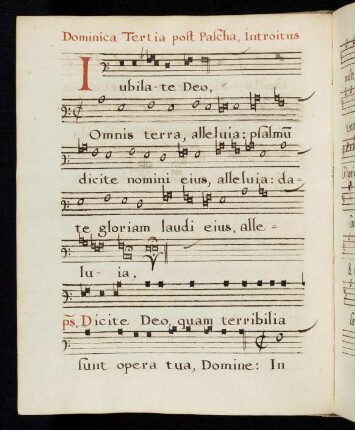 Dominica Tertia post Pascha, Introitus
Iubila-te Deo,
Omnis terra, alleluia: psalmū
dicite nomini eius, alleluia: da-
te gloriam laudi eius, alle-
lu- ia,
ps. Dicite Deo, quam terribilia
sunt opera tua, Domine: In